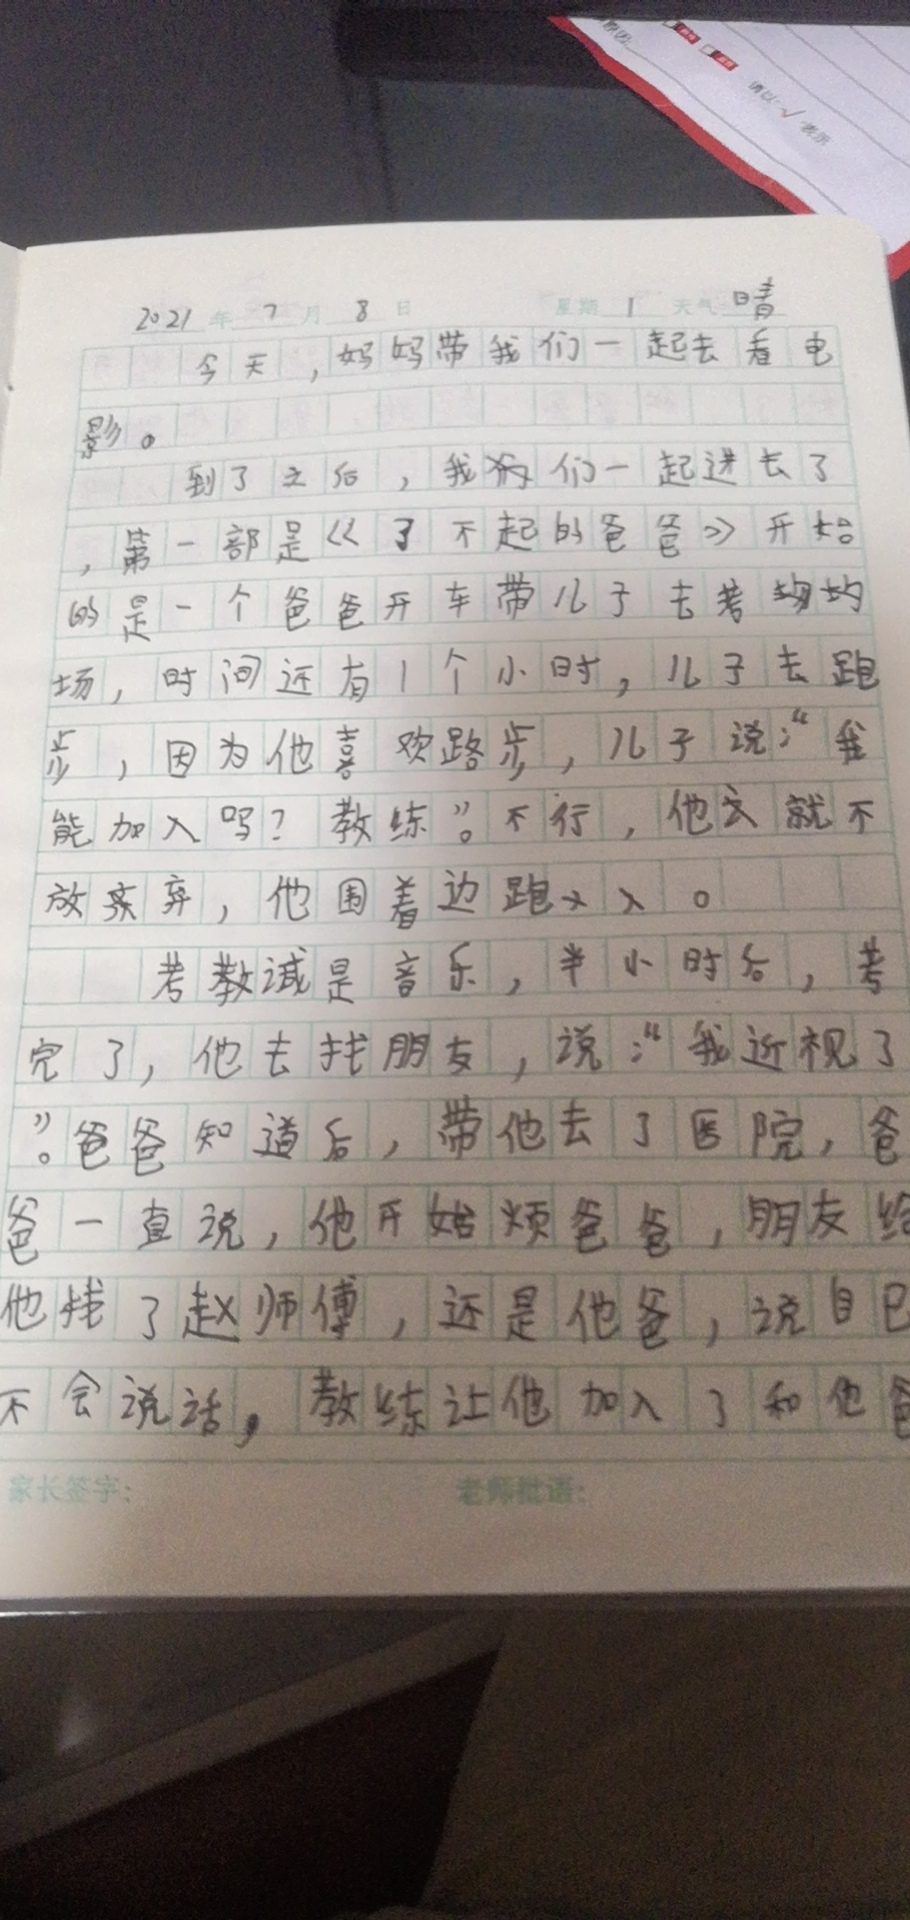 原因
请以"√"表示
2021年 7月 8日 星期 1 天气 晴
今天，妈妈带我们一起去看电
影。
到了之后，我们一起进去了
，第一部是《了不起的爸爸》开始
的是一个爸爸开车带儿子去考均
场，时间还有1个小时，儿子去跑
步，因为他喜欢路步，儿子说："我
能加入吗？教练"。不行，他就不
放弃，他围着边跑入入。
考教试是音乐，半小时后，考
完了，他去找朋友，说："我近视了
"。爸爸知道后，带他去了医院，爸
爸一直说，他开始烦爸爸，朋友给
他找了赵师傅，还是他爸，说自己
不会说话，教练让他加入了和他爸
家长签字： 老师批语：